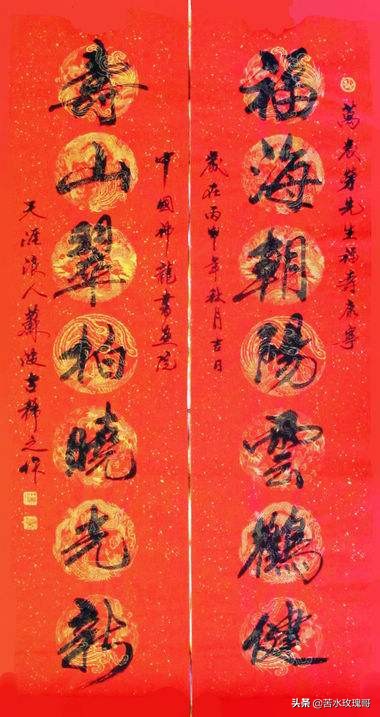 萬農芽先生福壽康寧
福海朝陽雲鶴健
歲在丙申年秋月吉日
中國神龍書畫院
壽山翠柏曉光新
天涯浪人蘇波
之作
头条 @苦水玫瑰哥